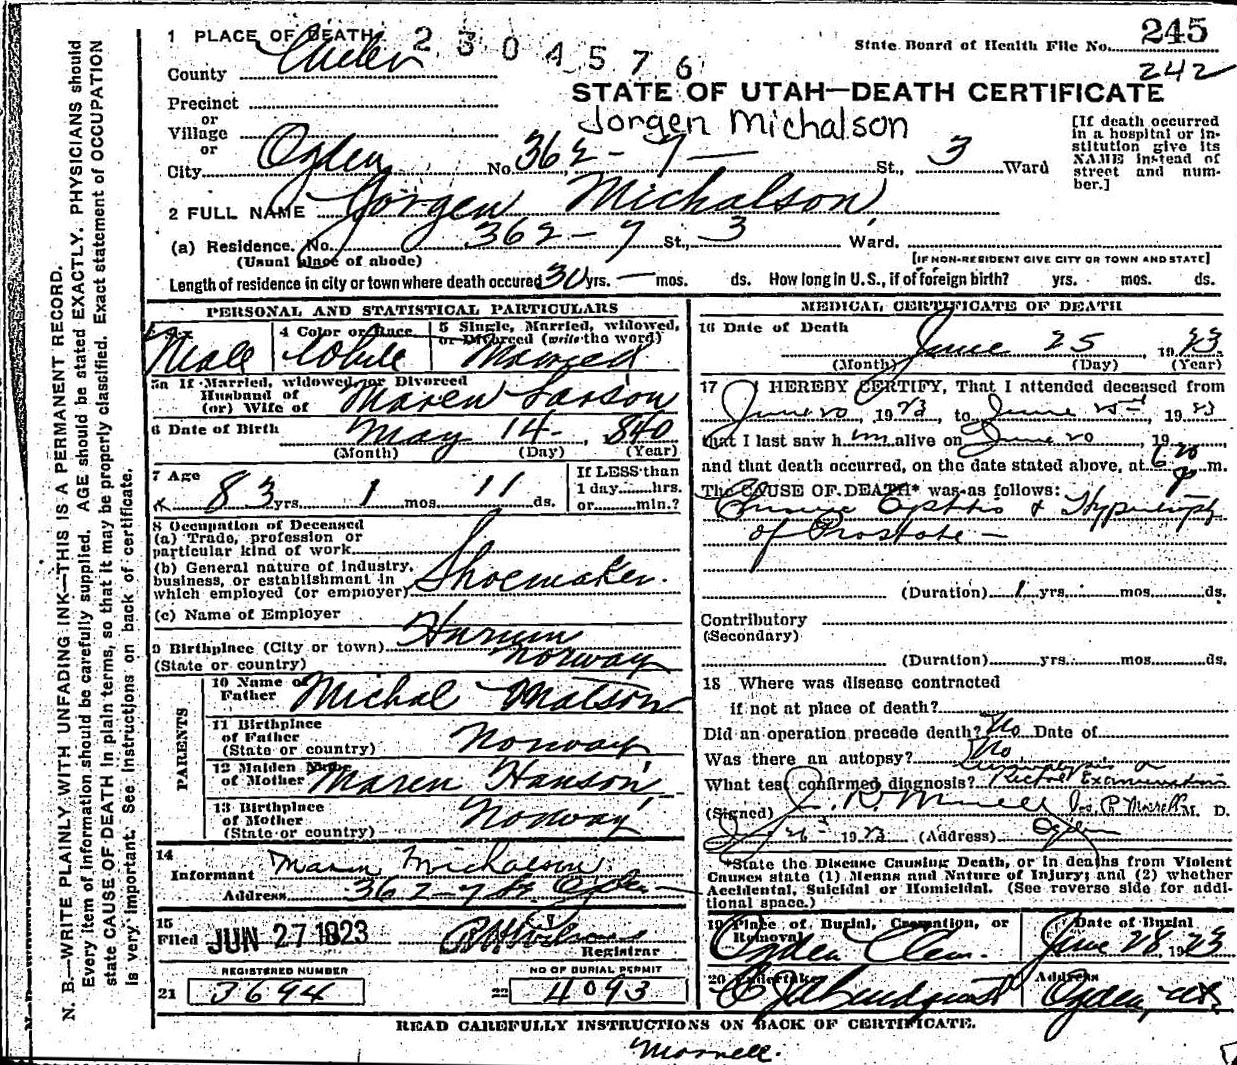 1 PLACE OF DEATH 2304576
State Board of Health File No. 245
County Weber
242
Precinct
or
Village
or
STATE OF UTAH—DEATH CERTIFICATE
Jorgen Michalson
[If death occurred in a hospital or institution give its NAME instead of street and number.]
City Ogden No. 362-7— St., 3 Ward
2 FULL NAME Jorgen Michalson
(a) Residence. No. 362-7 St., 3 Ward.
(Usual place of abode)
[IF NON-RESIDENT GIVE CITY OR TOWN AND STATE]
Length of residence in city or town where death occured 30 yrs. — mos. ds. How long in U.S., if of foreign birth? yrs. mos. ds.
N. B.—WRITE PLAINLY WITH UNFADING INK—THIS IS A PERMANENT RECORD.
Every item of information should be carefully supplied. AGE should be stated EXACTLY. PHYSICIANS should
state CAUSE OF DEATH in plain terms, so that it may be properly classified. Exact statement of OCCUPATION
is very important. See instructions on back of certificate.
PERSONAL AND STATISTICAL PARTICULARS
4 Color or Race
5 Single, Married, widowed,
or Divorced (write the word)
Male White Married
5a If Married, widowed, or Divorced
Husband of
(or) Wife of Maren Larson
6 Date of Birth May 14- 1840
(Month) (Day) (Year)
7 Age 83 yrs. 1 mos. 11 ds.
If LESS than
1 day hrs.
or min.?
8 Occupation of Deceased
(a) Trade, profession or
particular kind of work
(b) General nature of industry,
business, or establishment in
which employed (or employer) Shoemaker.
(c) Name of Employer
9 Birthplace (City or town)
(State or country) Norway
PARENTS
10 Name of
Father Michal Matson
11 Birthplace
of Father
(State or country) Norway
12 Maiden Name
of Mother Maren Hanson
13 Birthplace
of Mother
(State or country) Norway
14
Informant Maren Michalson
Address 362-7 St Ogden
15
Filed JUN 27 1923
Registrar
REGISTERED NUMBER
21 3694
NO OF BURIAL PERMIT
22 4093
MEDICAL CERTIFICATE OF DEATH
16 Date of Death June 25, 1923
(Month) (Day) (Year)
17 I HEREBY CERTIFY, That I attended deceased from
June 20, 1923 to June 25, 1923
that I last saw h im alive on June 20, 19
and that death occurred, on the date stated above, at 6 20 p m.
The CAUSE OF DEATH* was as follows:
of Prostate —
(Duration) 1 yrs. mos. ds.
Contributory
(Secondary)
(Duration) yrs. mos. ds.
18 Where was disease contracted
if not at place of death?
Did an operation precede death? No Date of
Was there an autopsy? No
What test confirmed diagnosis? Rectal Examination
(Signed) M. D.
26 1923 (Address) Ogden
*State the Disease Causing Death, or in deaths from Violent
Causes state (1) Means and Nature of Injury; and (2) whether
Accidental, Suicidal or Homicidal. (See reverse side for additional space.)
19 Place of Burial, Cremation, or
Removal
Ogden Cem.
Date of Burial
June 28, 1923
20 Undertaker
Address
Ogden, Ut
READ CAREFULLY INSTRUCTIONS ON BACK OF CERTIFICATE.
Morrell.